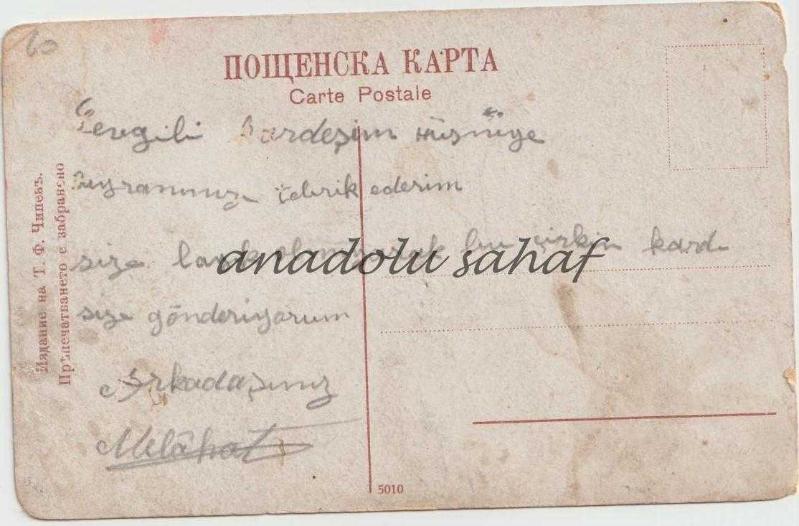 60
ПОЩЕНСКА КАРТА
Carte Postale
Sevgili Kardeşim Hüsnüye
Bayramınızı tebrik ederim
size layık olmayarak bu çirkin kard
size gönderiyorum
Arkadaşınız
Melâhat
anadolu sahaf
Издание на Т. Ф. Чипевъ.
Прѣпечатването е забранено
5010